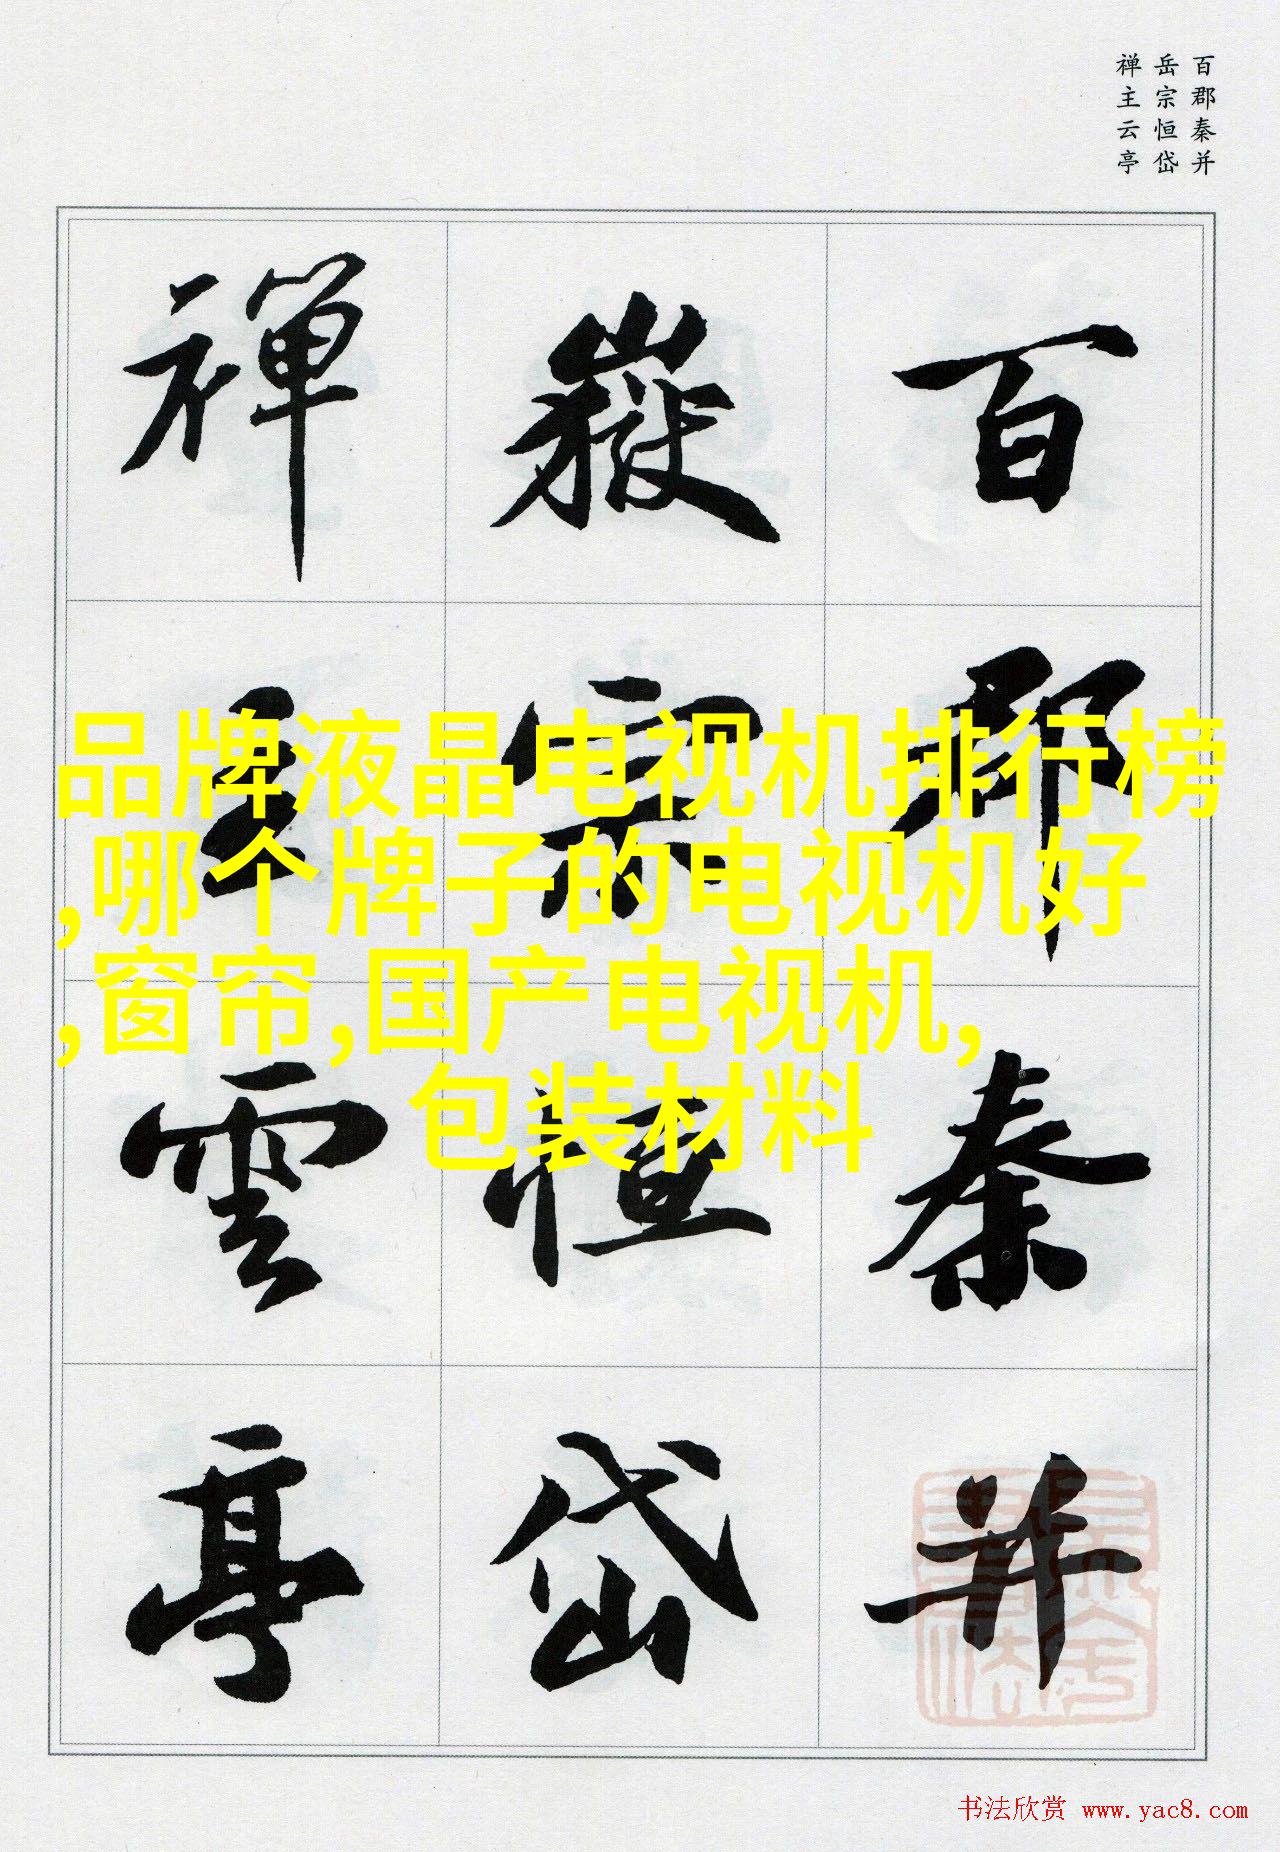 百郡秦并
岳宗恒岱
禅主云亭
百郡秦并
嶽宗恒岱
禅主雲亭
品牌液晶电视机排行榜
,哪个牌子的电视机好
,窗帘,国产电视机,
包装材料
书法欣赏 www.yac8.com